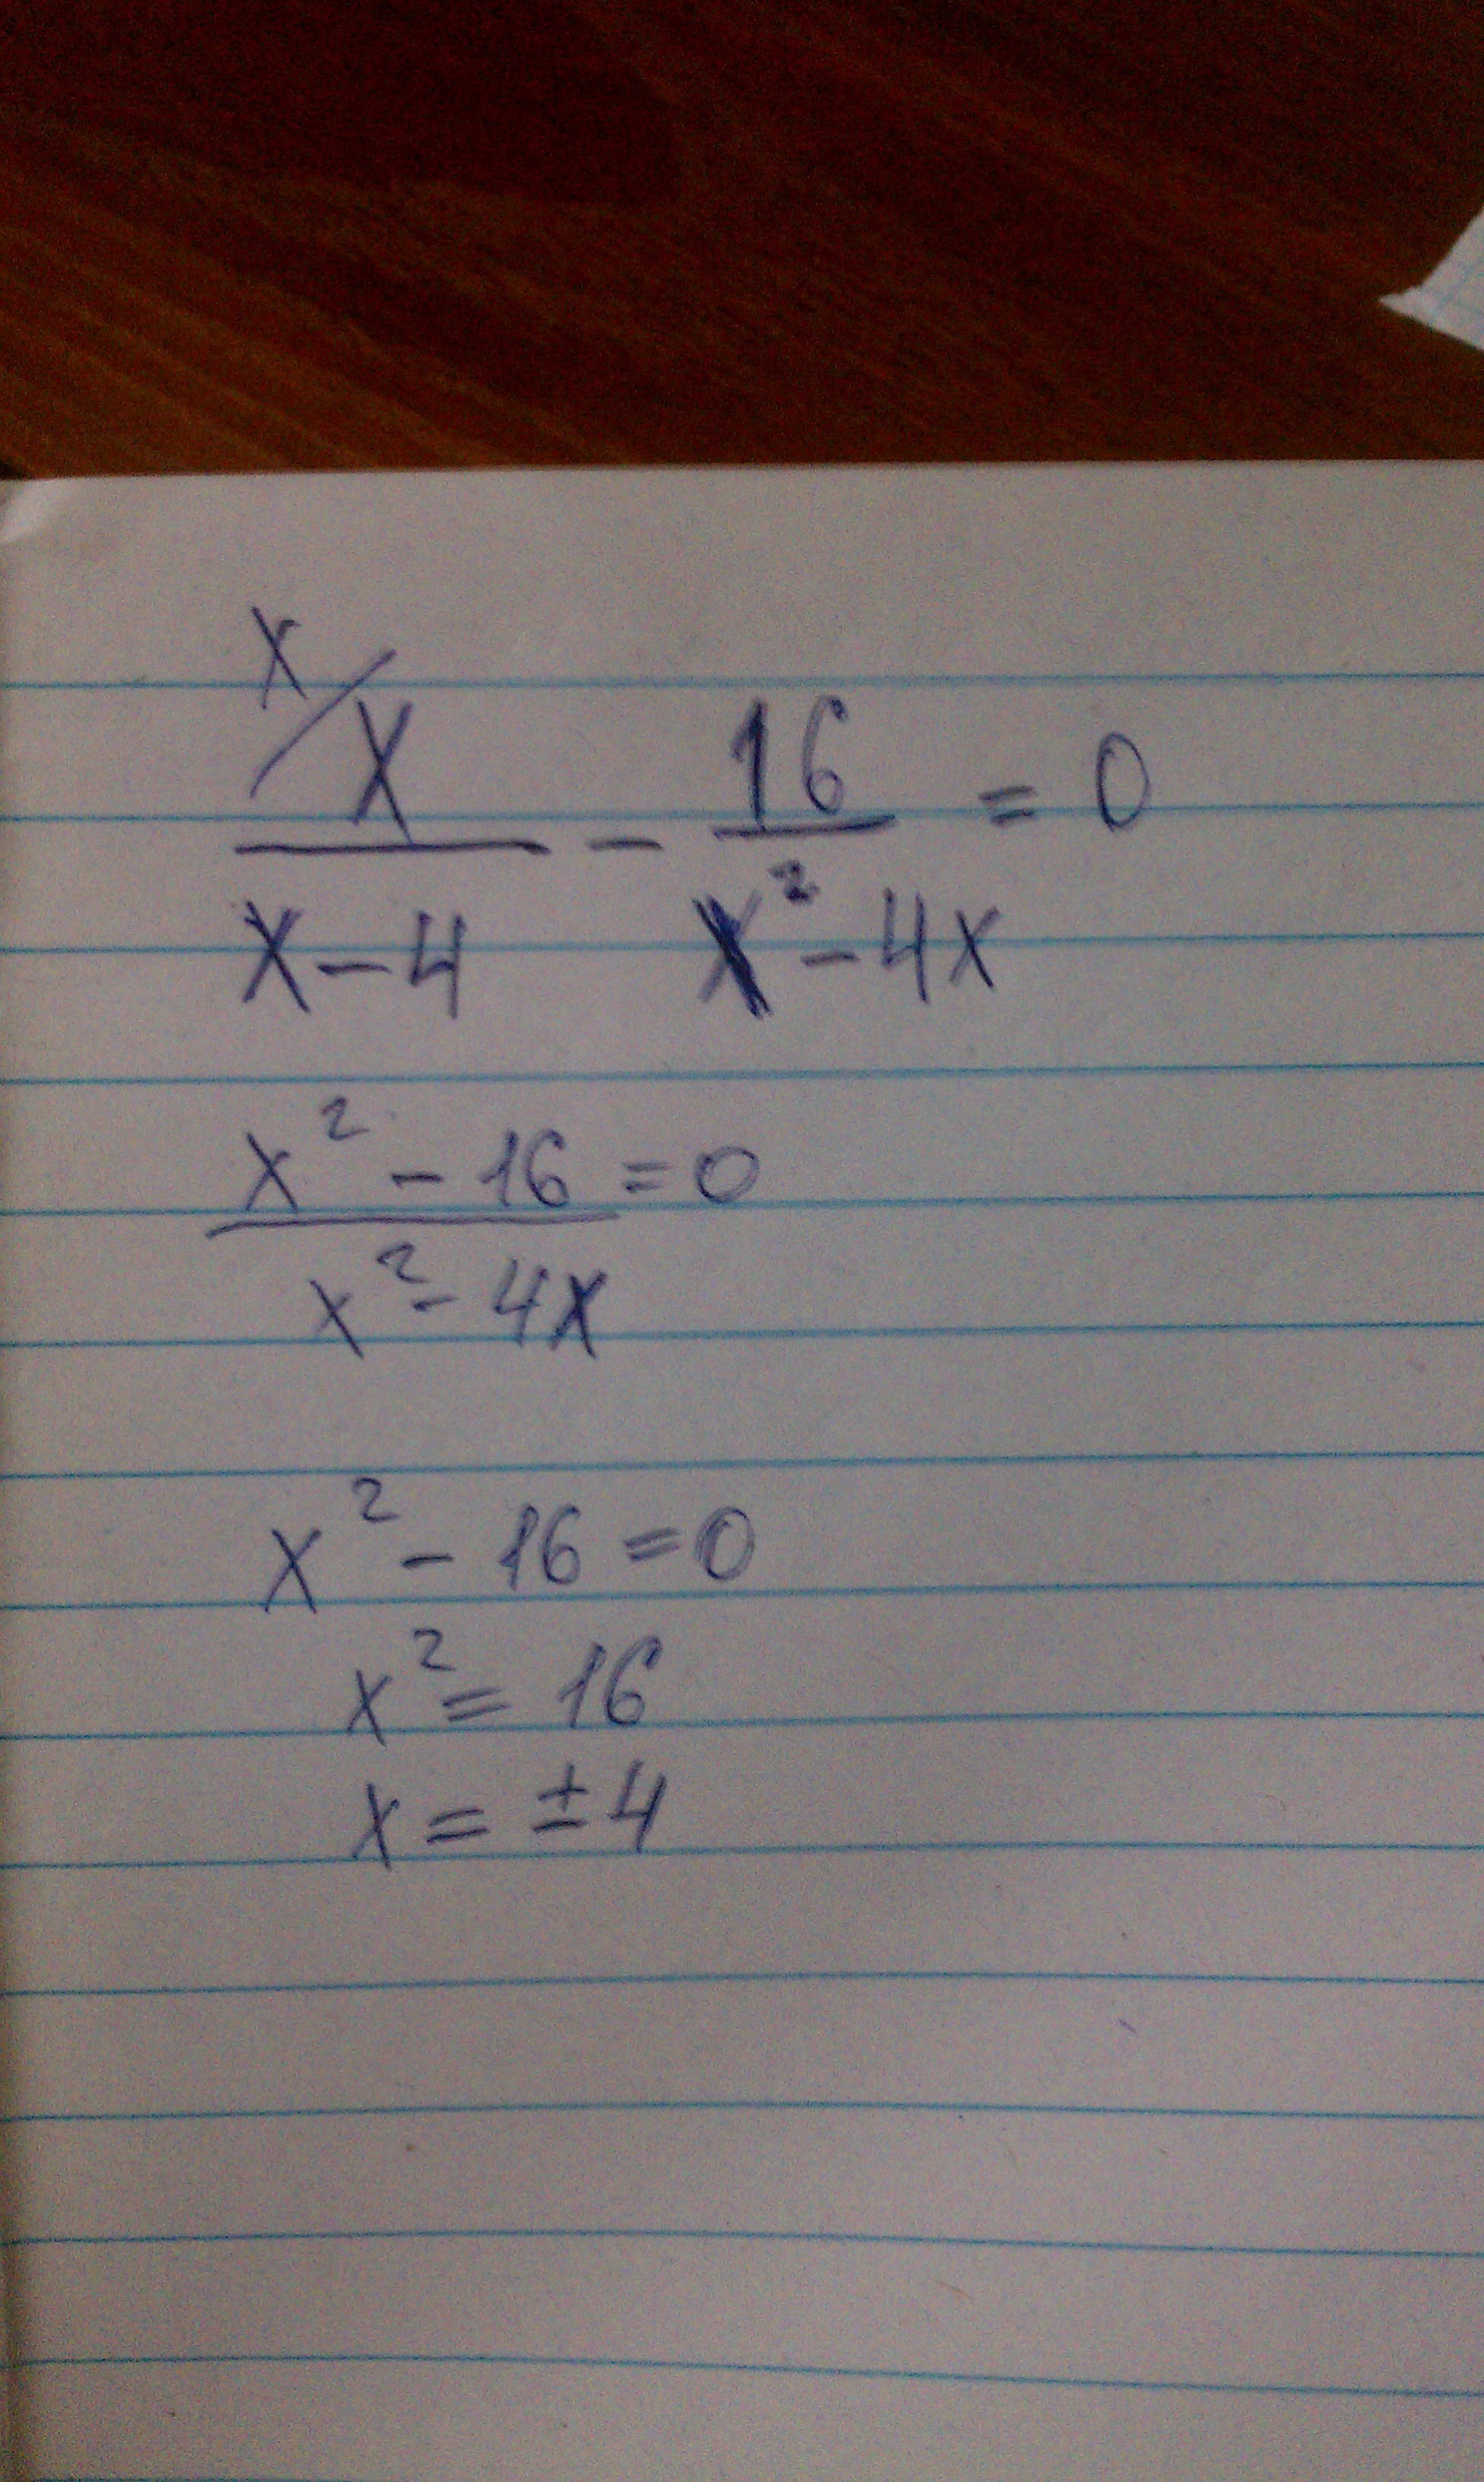 x/
x/(x-4) - 16/(x²-4x) = 0
(x²-16)/(x²-4x) = 0
x² - 16 = 0
x² = 16
x = ±4